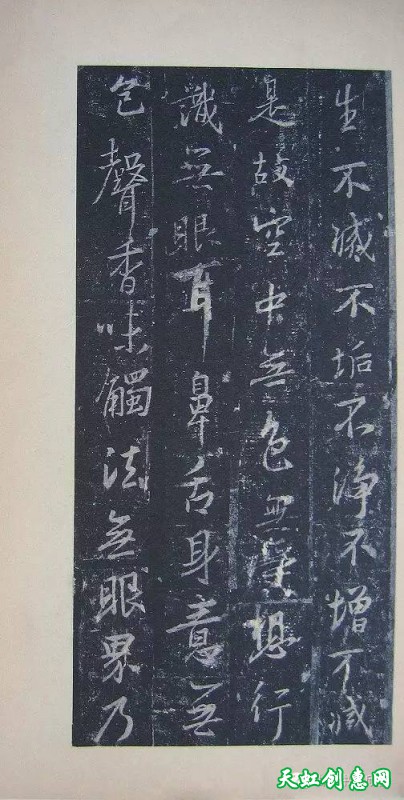 生不滅不垢不淨不增不減
是故空中無色無受想行
識無眼耳鼻舌身意無
色聲香味觸法無眼界乃
天虹创惠网